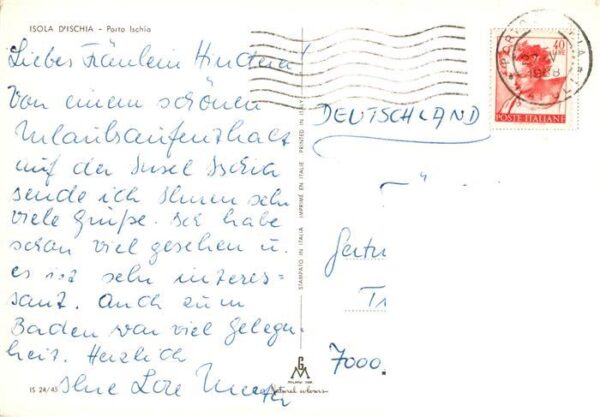 ISOLA D'ISCHIA - Porto Ischia
Liebes Fräulein
Von einem schönen
Urlaubsaufenthalt
auf der Insel Ischia
sende ich Ihnen sehr
viele Grüße. Ich habe
schon viel gesehen u.
es ist sehr interes=
sant. Auch zum
Baden war viel Gelegen-
heit. Herzlich
Ihre Lore
IS 24/45
STAMPATO IN ITALIA IMPRIMÉ EN ITALIE PRINTED IN ITALY
40
LIRE
POSTE ITALIANE
1968
DEUTSCHLAND
Gertr
Tr
7000.
Natural colours